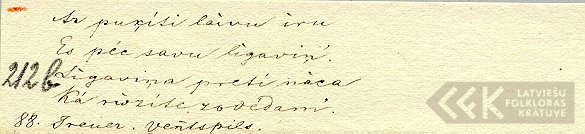 Ar puķīti laivu īru
Es pēc savu līgaviņ'.
212b
Līgaviņa pretī nāca
Kā rozīte ziedēdam'.
88. Treuer. Ventspils.
LATVIEŠU
FOLKLORAS
KRĀTUVE